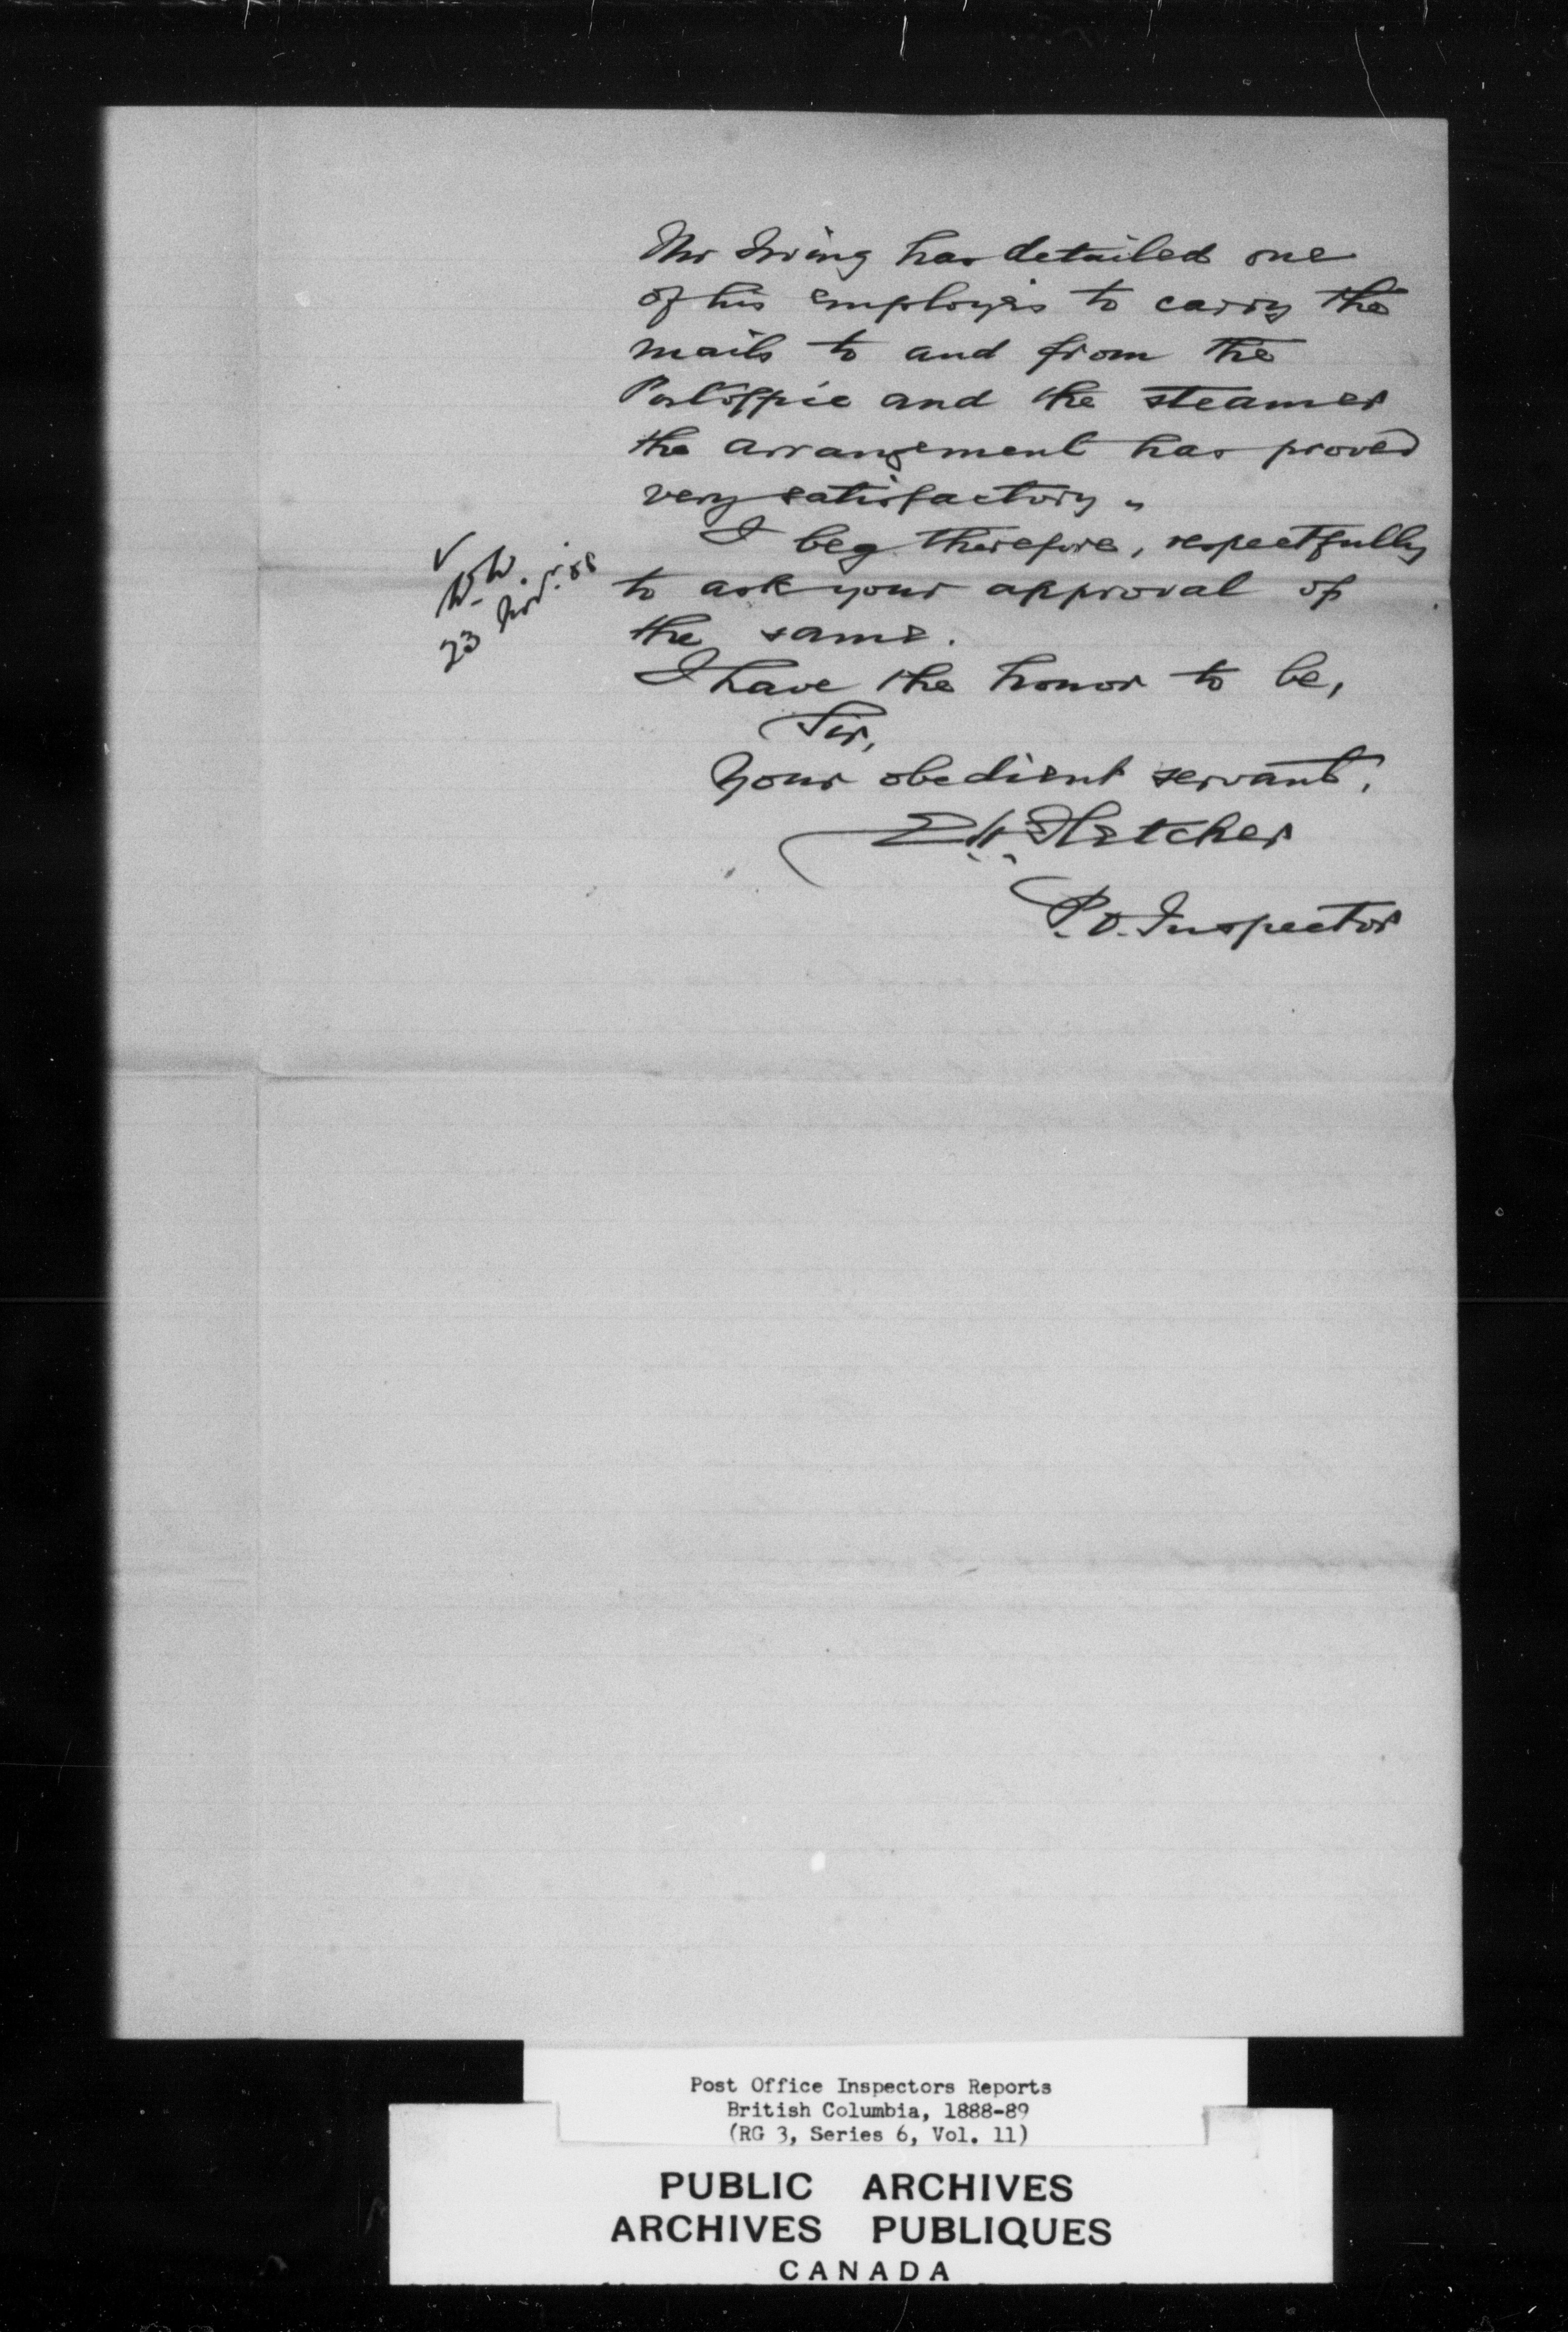 Mr Irving has detailed one
of his employés to carry the
mails to and from the
Postoffice and the steamer
the arrangement has proved
very satisfactory.
I beg therefore, respectfully
to ask your approval of
the same.
I have the honor to be,
Sir,
Your obedient servant,
E.H. Fletcher
P.O. Inspector
✓
W.W.
23 Nov. 88
Post Office Inspectors Reports
British Columbia, 1888-89
(RG 3, Series 6, Vol. 11)
PUBLIC ARCHIVES
ARCHIVES PUBLIQUES
CANADA